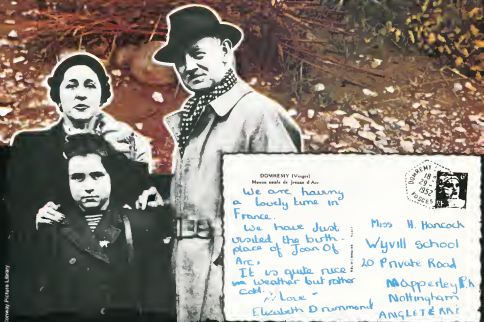 DOMREMY (Vosges)
Maison natale de Jeanne d'Arc
We are having
a lovely time in
France.
We have Just
visited the birth-
place of Joan Of
Arc,
It is quite nice
weather but rather
cold.
Love -
Elizabeth Drummond
DOMREMY
18 -
29 -
1952
VOSGES
Miss H. Hancock
Wyvill School
20 Private Road
Mapperley Pk
Nottingham
ANGLETERRE
Picture Library